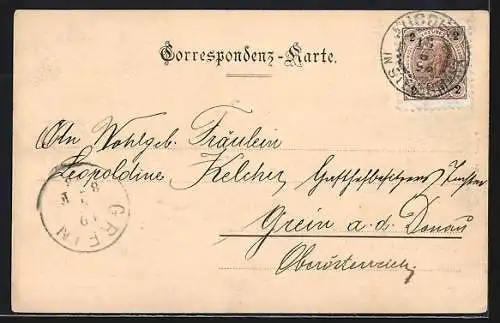 Correspondenz-Karte.
2 2
2 2
An Wohlgeb. Fräulein
Leopoldine Kelcher, Gasthofbesitzers Tochter
Grein a. d. Donau
Oberösterreich
GREIN